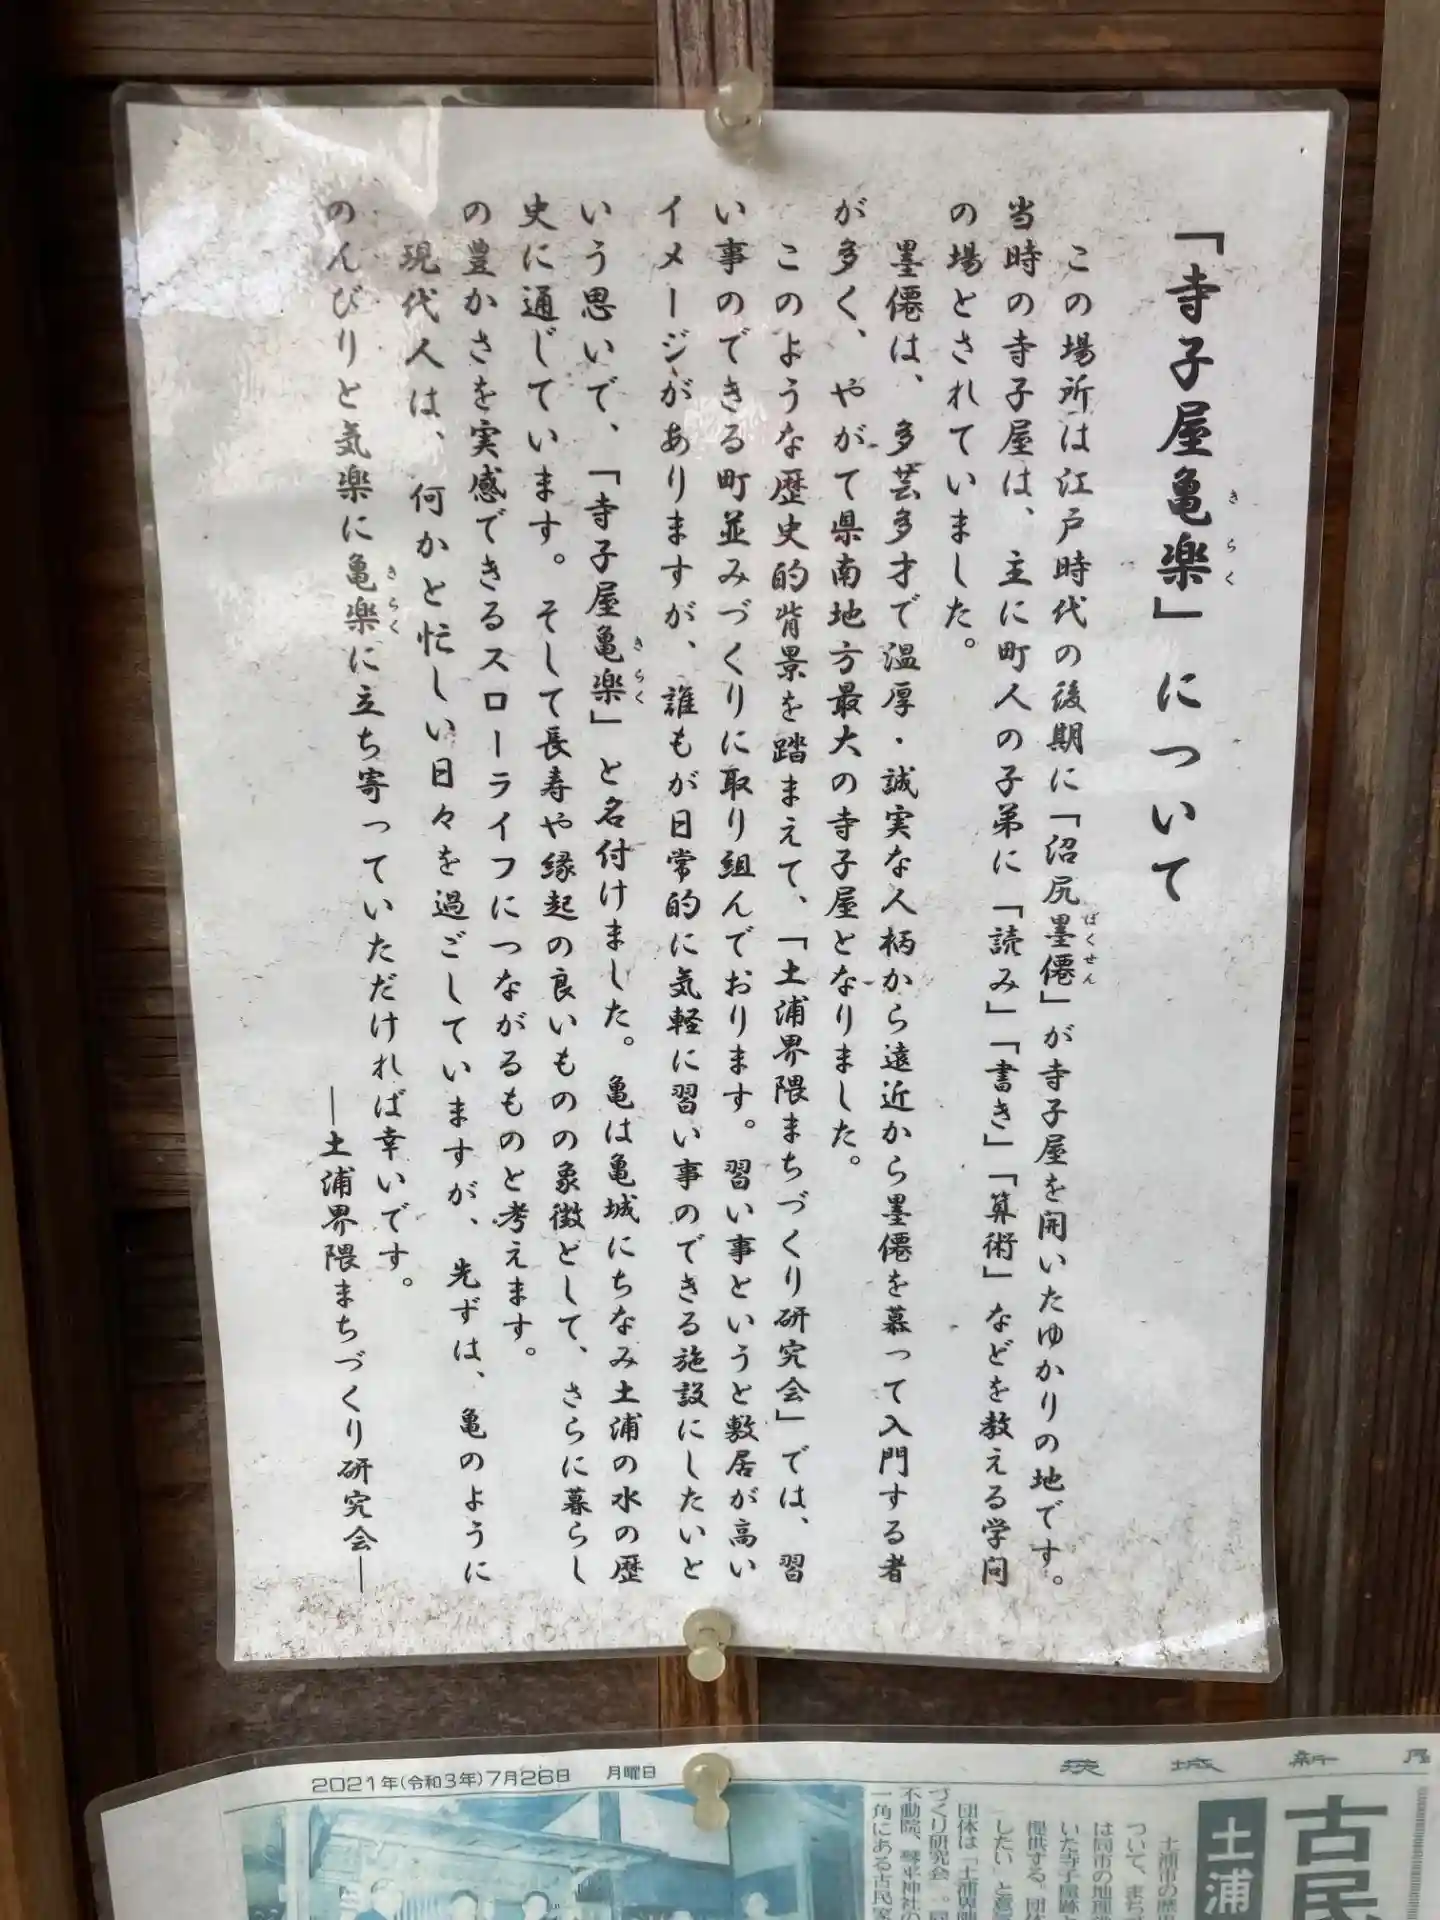 「寺子屋亀楽」について
きらく
この場所は江戸時代の後期に「沼尻墨僊」が寺子屋を開いたゆかりの地です。
ぼくせん
当時の寺子屋は、主に町人の子弟に「読み」「書き」「算術」などを教える学問
の場とされていました。
墨僊は、多芸多才で温厚・誠実な人柄から遠近から墨僊を慕って入門する者
が多く、やがて県南地方最大の寺子屋となりました。
このような歴史的背景を踏まえて、「土浦界隈まちづくり研究会」では、習
い事のできる町並みづくりに取り組んでおります。習い事というと敷居が高い
イメージがありますが、誰もが日常的に気軽に習い事のできる施設にしたいと
いう思いで、「寺子屋亀楽」と名付けました。亀は亀城にちなみ土浦の水の歴
きらく
史に通じています。そして長寿や縁起の良いものの象徴として、さらに暮らし
の豊かさを実感できるスローライフにつながるものと考えます。
現代人は、何かと忙しい日々を過ごしていますが、先ずは、亀のように
のんびりと気楽に亀楽に立ち寄っていただければ幸いです。
きらく
―土浦界隈まちづくり研究会―
2021年(令和3年)7月26日 月曜日
茨城新
古民
土浦
土浦市の歴
ついて、まち
は同市の地理
いた寺子屋跡
提供する。団体
したい」と意
団体は「土浦界隈
づくり研究会」。同
不動院、琴平神社の
一角にある古民家